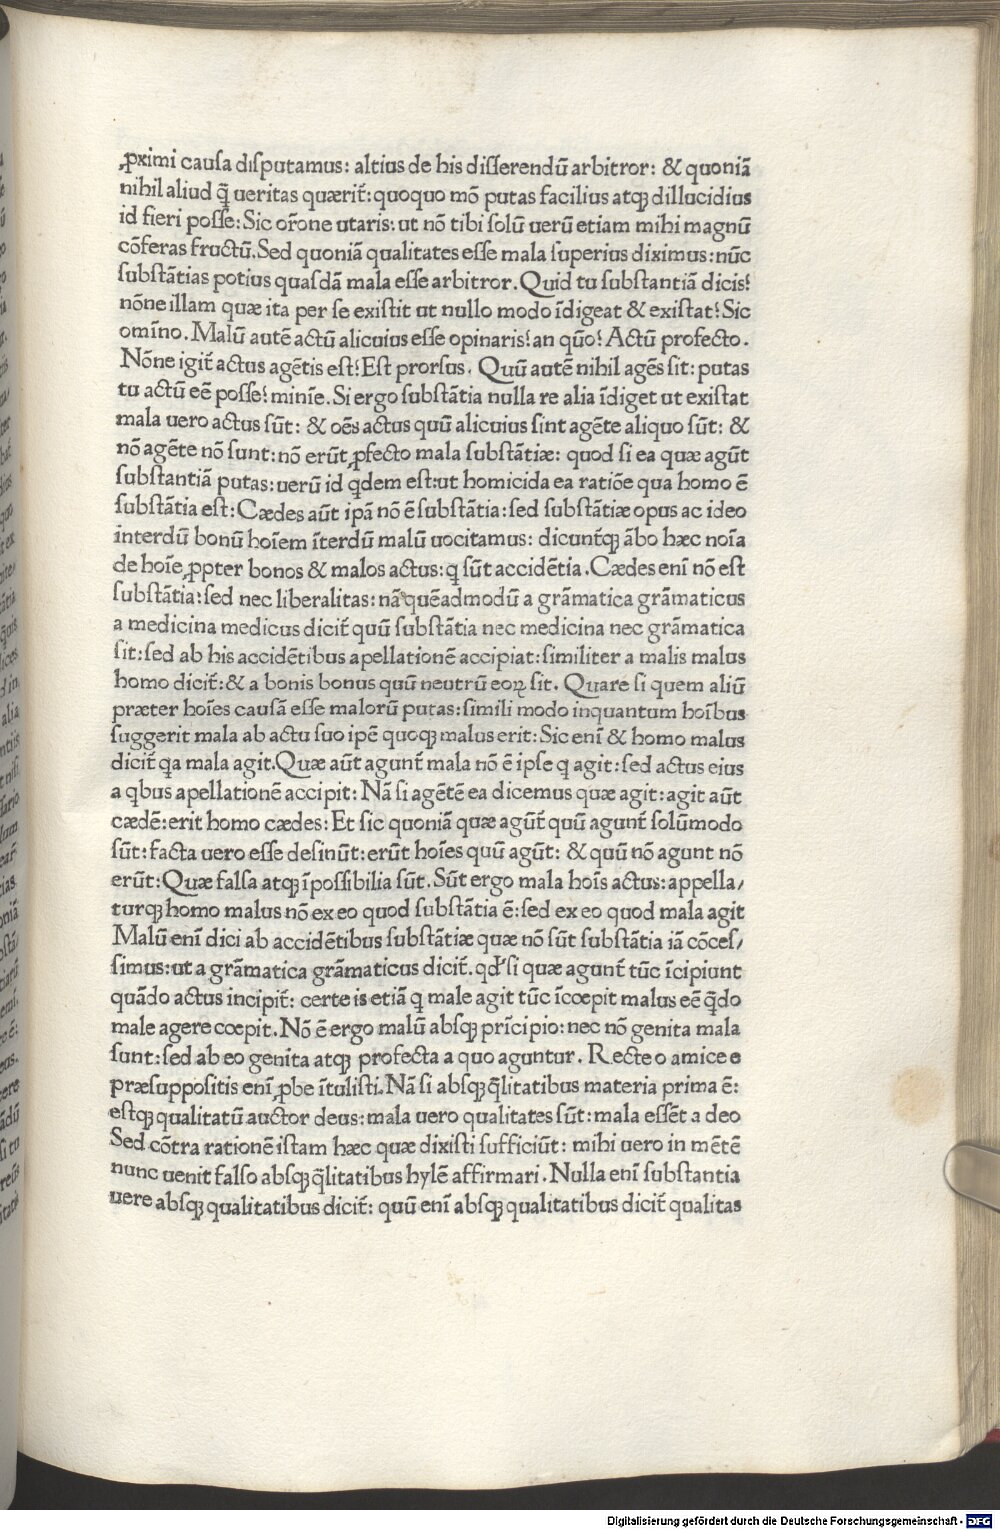 ꝓximi causa disputamus: altius de his disserendū arbitror: & quoniā
nihil aliud q̄ ueritas quærit̄: quoquo mō putas facilius atqꝫ dillucidius
id fieri posse: Sic or̄one utaris: ut nō tibi solū uerū etiam mihi magnū
cōferas fructū. Sed quoniā qualitates esse mala superius diximus: nūc
substātias potius quasdā mala esse arbitror. Quid tu substantiā dicis?
nōne illam quæ ita per se existit ut nullo modo īdigeat & existat? Sic
omīno. Malū autē actū alicuius esse opinaris? an quo̅? Actū profecto.
Nōne igit̄ actus agētis est? Est prorsus. Quū autē nihil agēs sit: putas
tu actū eē posse? minīe. Si ergo substātia nulla re alia īdiget ut existat
mala uero actus sūt: & oēs actus quū alicuius sint agēte aliquo sūt: &
nō agēte nō sunt: nō erūt ꝓfecto mala substātiæ: quod si ea quæ agūt
substantiā putas: uerū id qdem est: ut homicida ea ratiōe qua homo ē
substātia est: Cædes aūt ipā nō ē substātia: sed substātiæ opus ac ideo
interdū bonū hoīem īterdū malū uocitamus: dicunt̄qꝫ ābo hæc noīa
de hoīe ꝓpter bonos & malos actus: q sūt accidētia. Cædes enī nō est
substātia: sed nec liberalitas: nā quēadmodū a grāmatica grāmaticus
a medicina medicus dicit̄ quū substātia nec medicina nec grāmatica
sit: sed ab his accidētibus apellationē accipiat: similiter a malis malus
homo dicit̄: & a bonis bonus quū neutrū eoꝝ sit. Quare si quem aliū
præter hoīes causā esse malorū putas: simili modo inquantum hoībus
suggerit mala ab actu suo ipē quoqꝫ malus erit: Sic enī & homo malus
dicit̄ qa mala agit. Quæ aūt agunt̄ mala nō ē ipse q agit: sed actus eius
a qbus apellationē accipit: Nā si agētē ea dicemus quæ agit: agit aūt
cædē: erit homo cædes: Et sic quoniā quæ agūt̄ quū agunt̄ solūmodo
sūt: facta uero esse desinūt: erūt hoīes quū agūt: & quū nō agunt nō
erūt: Quæ falsa atqꝫ īpossibilia sūt. Sūt ergo mala hoīs actus: appella/
turqꝫ homo malus nō ex eo quod substātia ē: sed ex eo quod mala agit
Malū enī dici ab accidētibus substātiæ quæ nō sūt substātia iā cōces/
simus: ut a grāmatica grāmaticus dicit̄. qđ si quæ agunt̄ tūc īcipiunt
quādo actus incipit̄: certe is etiā q male agit tūc īcœpit malus eē q̄do
male agere cœpit. Nō ē ergo malū absqꝫ prīcipio: nec nō genita mala
sunt: sed ab eo genita atqꝫ profecta a quo aguntur. Recte o amice e
præsuppositis enī ꝓbe ītulisti. Nā si absqꝫ q̄litatibus materia prima ē:
estqꝫ qualitatū auctor deus: mala uero qualitates sūt: mala essēt a deo
Sed cōtra rationē istam hæc quæ dixisti sufficiūt: mihi uero in mētē
nunc uenit falso absqꝫ q̄litatibus hylē affirmari. Nulla enī substantia
uere absqꝫ qualitatibus dicit̄: quū enī absqꝫ qualitatibus dicit̄ qualitas
Digitalisierung gefördert durch die Deutsche Forschungsgemeinschaft - DFG